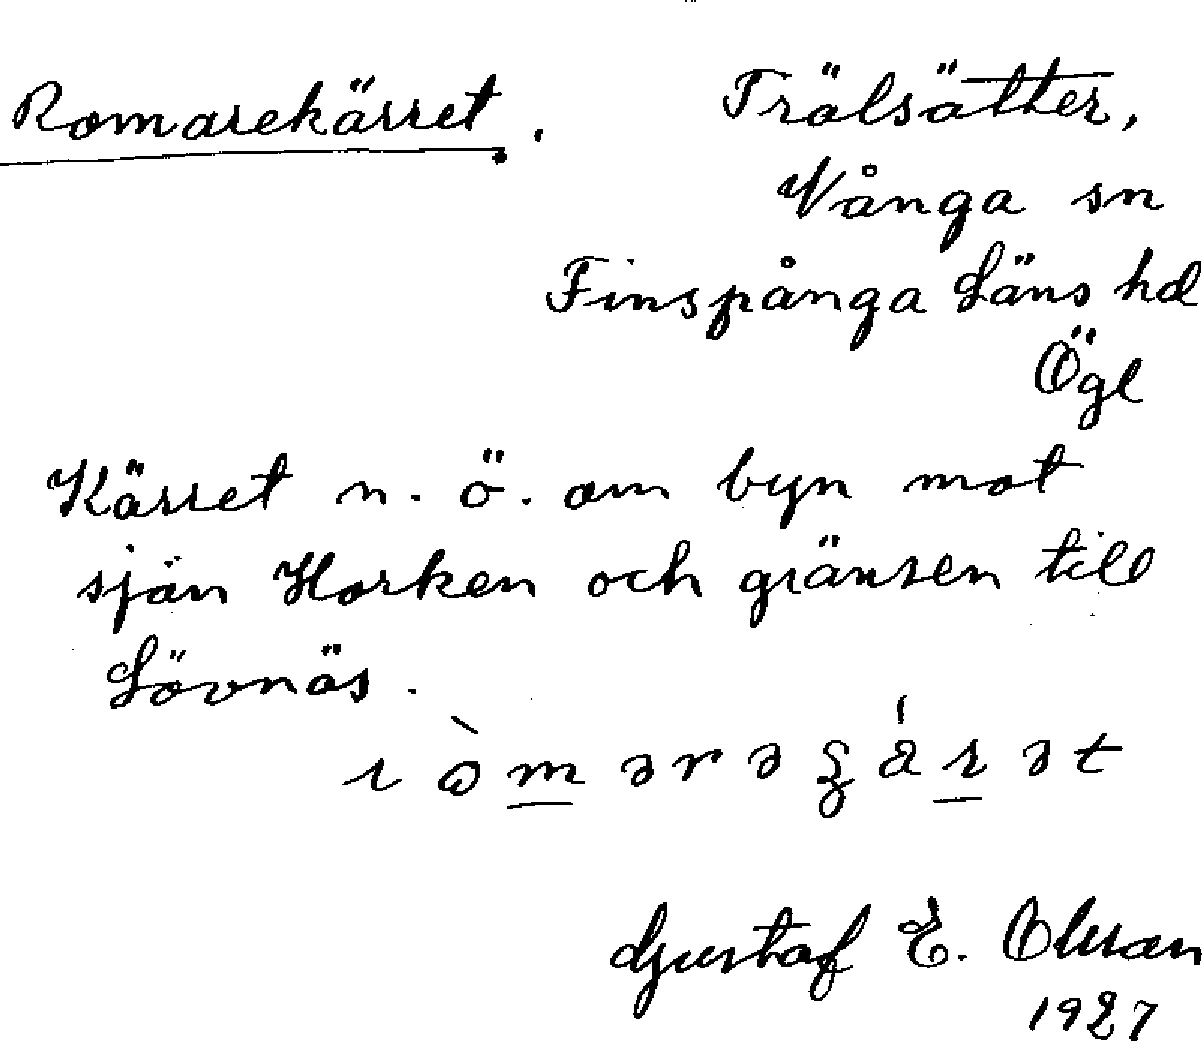 Romarekärret.
Trälsätter,
Vånga sn
Finspånga Läns hd
Ögl
Kärret n. ö. om byn mot
sjön Horken och gränsen till
Lövnäs.
Gustaf E. Olsson
1927